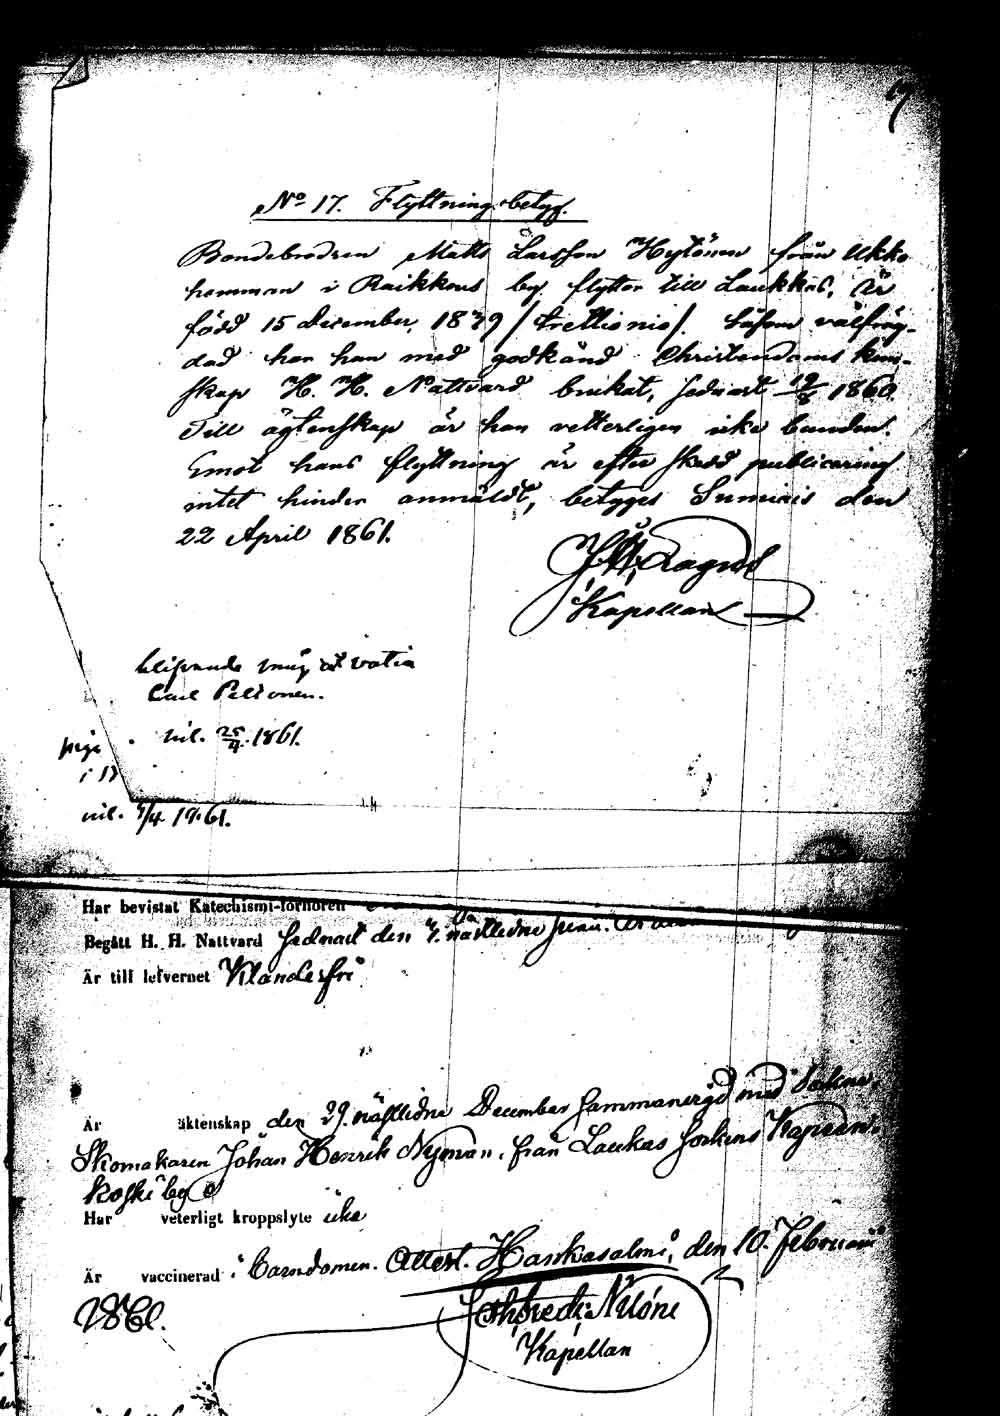 No 17. Flyttningsbetyg.
Bondebrodren Matts Larsson Hytönen från Ukko
hemman i Raikkaus by flyttar till Laukkas, är
född 15 December, 1839 / trettionio /. Såsom välfräg-
dad har han med godkänd Christendoms kun-
skap H. H. Nattvard brukat, sednast 19/8 1860.
Till ägtenskap är han vetterligen icke bunden.
Emot hans flyttning är efter skedd publicering
intet hinder anmäldt, betygges Sumiais den
22 April 1861.
Kapellan
Carl Peltonen.
nil. 25/4. 1861.
piga
i 13
nil. 4/4 1961.
Har bevistat Katechismi-förhören
Begått H. H. Nattvard sednast den nästledne
Är till lefvernet Klanderfri
Är äktenskap den 29. nästledne December sammanvigd med
Skomakaren Johan Henrik Nyman, från Laukas Sockens
koski by
Har veterligt kroppslyte icke
Är vaccinerad i barndomen. Attest. Hankasalmi, den 10. Februarii
1861.
Kapellan